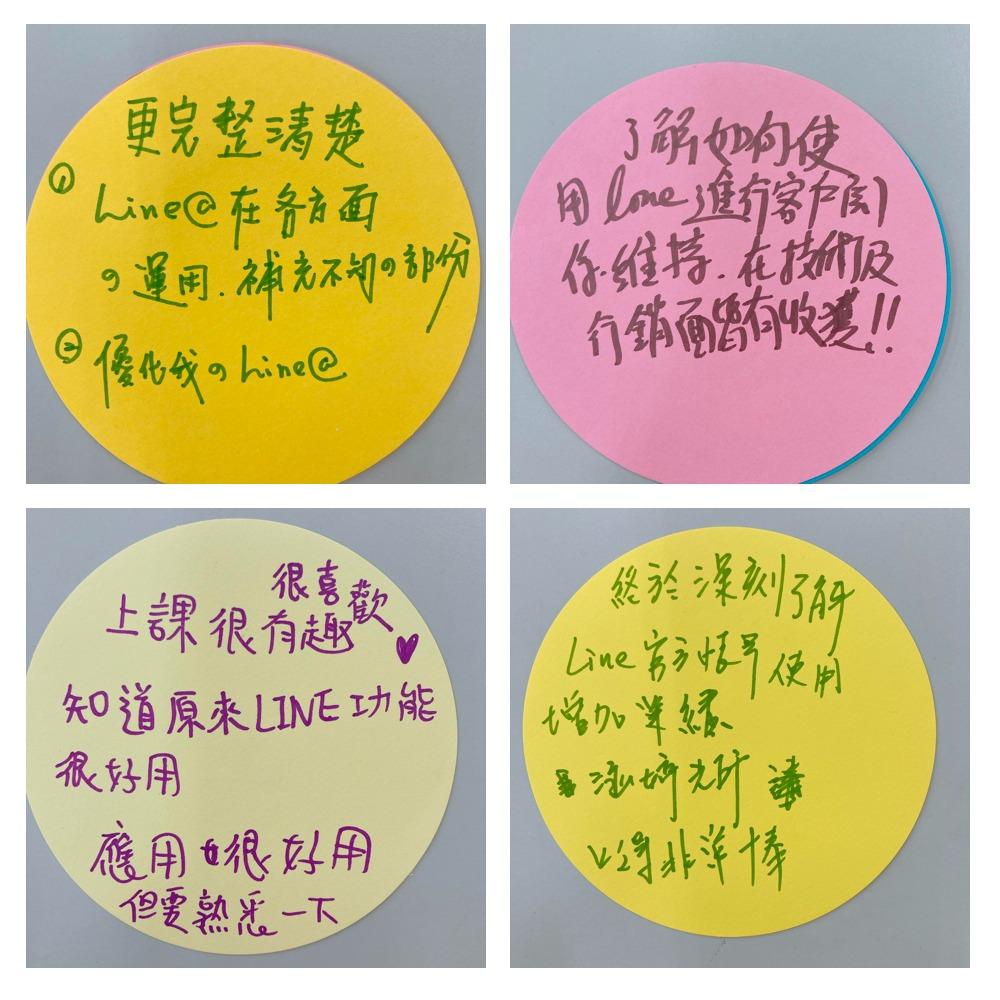 更完整清楚
① Line@在各方面
の運用.補充不夠の部份
② 優化我のLine@
了解如何使
用 line 進行客戶関
係維持.在技術及
行銷面皆有收獲!!
很喜歡
上課很有趣
知道原來LINE功能
很好用
應用也很好用
但要熟悉一下
終於深刻了解
Line 官方帳号使用
增加業績
老師講
得非常棒